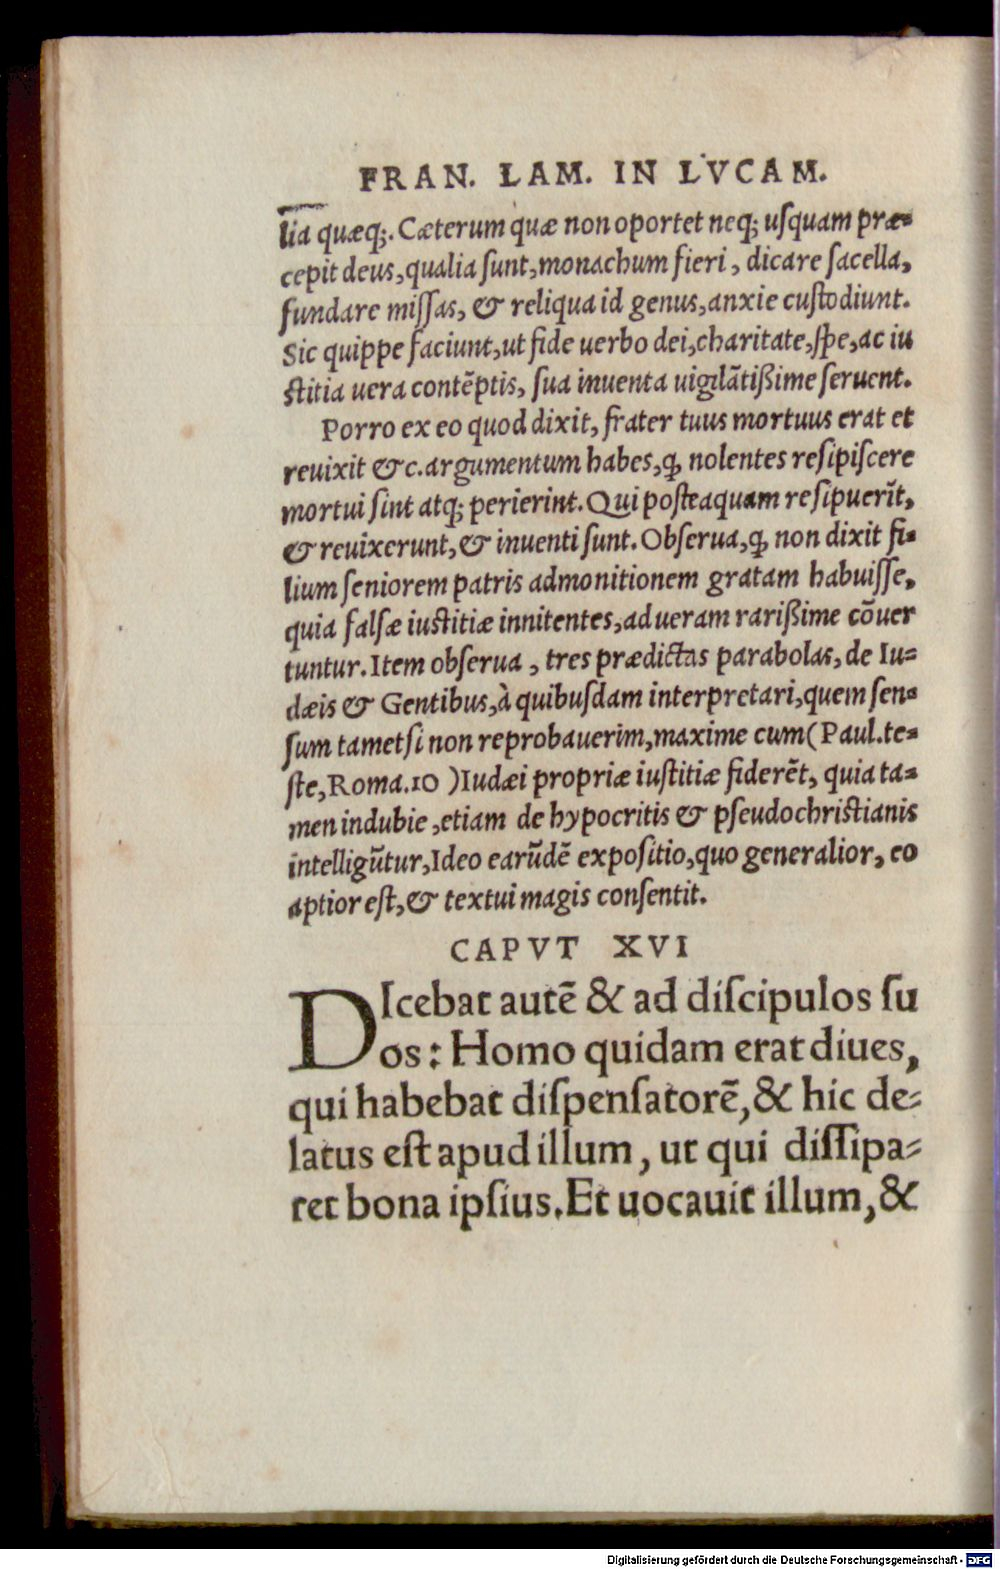 FRAN. LAM. IN LVCAM.
lia quæq;. Cæterum quæ non oportet neq; uſquam præ-
cepit deus, qualia ſunt, monachum fieri, dicare ſacella,
fundare miſſas, & reliqua id genus, anxie cuſtodiunt.
Sic quippe faciunt, ut fide uerbo dei, charitate, ſpe, ac iu
ſtitia uera contẽptis, ſua inuenta uigilãtißime ſeruent.
Porro ex eo quod dixit, frater tuus mortuus erat et
reuixit &c. argumentum habes, ꝙ nolentes reſipiſcere
mortui ſint atq; perierint. Qui poſteaquam reſipuerĩt,
& reuixerunt, & inuenti ſunt. Obſerua, ꝙ non dixit fi-
lium ſeniorem patris admonitionem gratam habuiſſe,
quia falſæ iuſtitiæ innitentes, ad ueram rarißime cõuer
tuntur. Item obſerua, tres prædictas parabolas, de Iu-
dæis & Gentibus, à quibuſdam interpretari, quem ſen-
ſum tametſi non reprobauerim, maxime cum (Paul. te-
ſte, Roma. 10 ) Iudæi propriæ iuſtitiæ fiderẽt, quia ta-
men indubie, etiam de hypocritis & pſeudochriſtianis
intelligũtur, Ideo earũdẽ expoſitio, quo generalior, eo
aptior eſt, & textui magis conſentit.
CAPVT XVI
DIcebat autẽ & ad diſcipulos ſu
os: Homo quidam erat diues,
qui habebat diſpenſatorẽ, & hic de-
latus eſt apud illum, ut qui diſſipa-
ret bona ipſius. Et uocauit illum, &
Digitalisierung gefördert durch die Deutsche Forschungsgemeinschaft - DFG